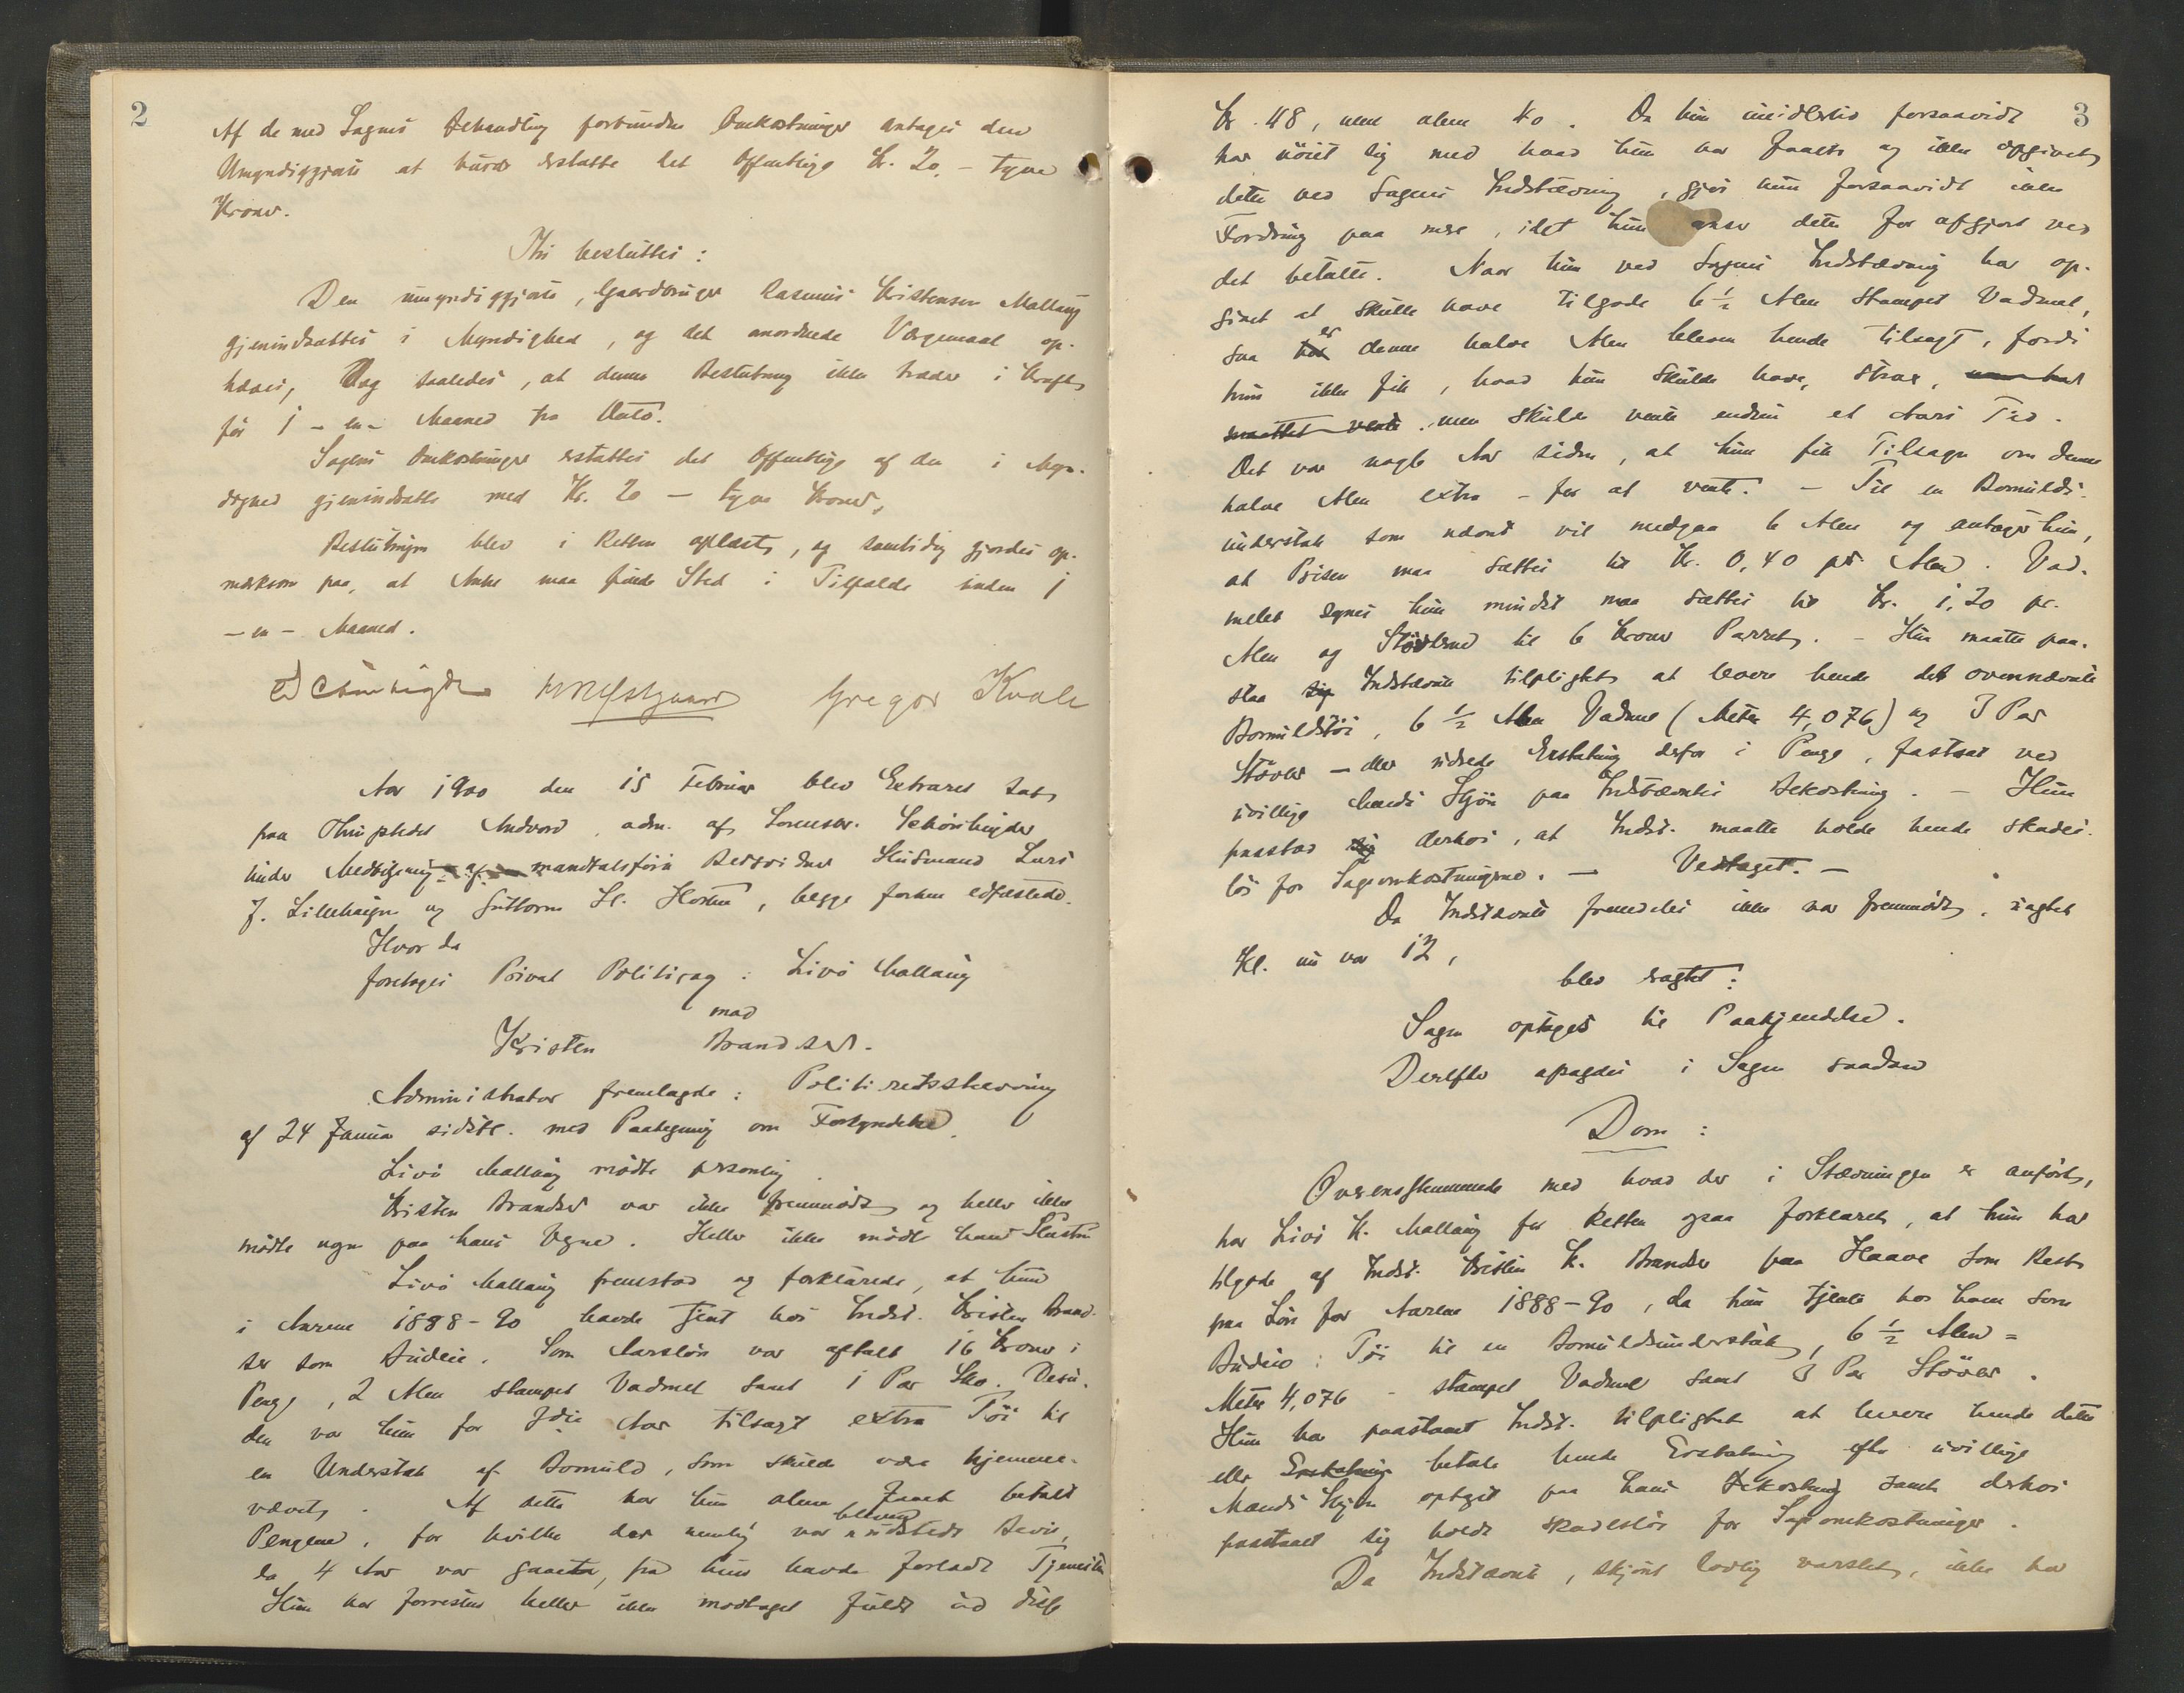 2
Af de med Sagens Behandling forbundne Omkostninger antages den
Umyndiggjorte at burde erstatte det Offentlige Kr. 20,- tyve
Kroner.
Thi besluttes:
Den umyndiggjorte, Gaardbruger Rasmus Kristensen Mallaug
gjenindsættes i Myndighed, og det anordnede Værgemaal op-
hæves, Dog saaledes, at denne Beslutning ikke træder i Kraft
før 1 - en - Maaned fra Dato.
Sagens Omkostninger erstattes det Offentlige af den i Myn-
dighed gjenindsatte med Kr. 20 — tyve Kroner,
Beslutningen blev i Retten oplæst, og samtidig gjordes op-
mærksom paa, at Anke maa finde Sted i Tilfælde inden 1
- en - Maaned.
Gregor Kvale
Aar 1900 den 15 Februar blev Extraret sat
paa Thingstedet Andvord, adm. af Sorenskr.
under Medvirkning af mandtalsførte Retsvidner Husmand Lars
J. Lillehaugen og Guttorm H. , begge forhen edfæstede.
Hvor da
foretoges Privat Politisag: Livø Mallaug
mod
Kristen Brandser.
Administrator fremlagde: Politiretsstævning
af 24 Januar sidstl. med Paategning om Forkyndelse.
Livø Mallaug mødte personlig.
Kristen Brandser var ikke fremmødt og heller ikke
mødte nogen paa hans Vegne. Heller ikke mødte hans Hustru
Livø Mallaug fremstod og forklarede, at hun
i Aarene 1888-90 havde tjent hos Indst. Kristen Brand-
ser som Budeie. Som Aarsløn var aftalt 16 Kroner i
Penge, 2 Alen stampet Vadmel samt 1 Par Sko. Desu-
den var hun for 3die Aar tilsagt extra Tøi til
en Understak af Bomuld, som skulde være hjemme-
vævet. Af dette har hun alene faaet betalt
Pengene, for hvilke der nemlig var bleven udstedt Bevis,
da 4 Aar var gaaet, fra hun havde forladt Tjenesten
Hun har forresten heller ikke modtaget fuldt ud disse
3
Kr. 48, men alene 40. Da hun imidlertid forsaavidt
har nøiet sig med hvad hun har faaet og ikke opgivet
dette ved Sagens Indstævning, gjør hun forsaavidt ikke
Fordring paa mere, idet hun anser dette for afgjort ved
det betalte. Naar hun ved Sagens Indstævning har op-
givet at skulle have tilgode 6 1/2 Alen stampet Vadmel,
saa er denne halve Alen bleven hende tilsagt, fordi
hun ikke fik, hvad hun skulde have, strax,
maattet vente. men skulde vente endnu et Aars Tid.
Det var nogle Aar siden, at hun fik Tilsagn om denne
halve Alen extra - for at vente. - Til en Bomulds-
understak som nævnt vil medgaa 6 Alen og antager hun,
at Prisen maa sættes til Kr. 0,40 pr. Alen. Vad-
melet synes hun mindst maa sættes til Kr. 1,20 pr.
Alen og Støvlerne til 6 Kroner Parret. - Hun maatte paa-
staa sig Indstævnte tilpligtet at levere hende det ovennævnte
Bomuldstøi, 6 1/2 Alen Vadmel (Meter 4,076) og 3 Par
Støvler - eller udrede Erstatning derfor i Penge, fastsat ved
uvillige Mænds Skjøn paa Indstævntes Bekostning. - Hun
paastod sig derhos, at Indst. maatte holde hende skades-
løs for Sagsomkostningerne. - Vedtaget. -
Da Indstævnte fremdeles ikke var fremmødt, uagtet
Kl. nu var 12,
blev sagt:
Sagen optages til Paakjendelse.
Derefter afsagdes i Sagen saadan
Dom:
Overensstemmende med hvad der i Stævningen er anført,
har Livø K. Mallaug for Retten ogsaa forklaret, at hun har
tilgode af Indst. Kristen K. Brandser paa Haave som Rest
paa Løn for Aarene 1888-90, da hun tjente hos ham som
Budeie: Tøi til en Bomuldsunderstak, 6 1/2 Alen =
Meter 4,076 - stampet Vadmel samt 3 Par Støvler.
Hun har paastaaet Indst. tilpligtet at levere hende dette
eller Erstatning betale hende Erstatning efter uvillige
Mænds Skjøn optaget paa hans Bekostning samt derhos
paastaaet sig holdt skadesløs for Sagsomkostninger.
Da Indstævnte, skjønt lovlig varslet, ikke har